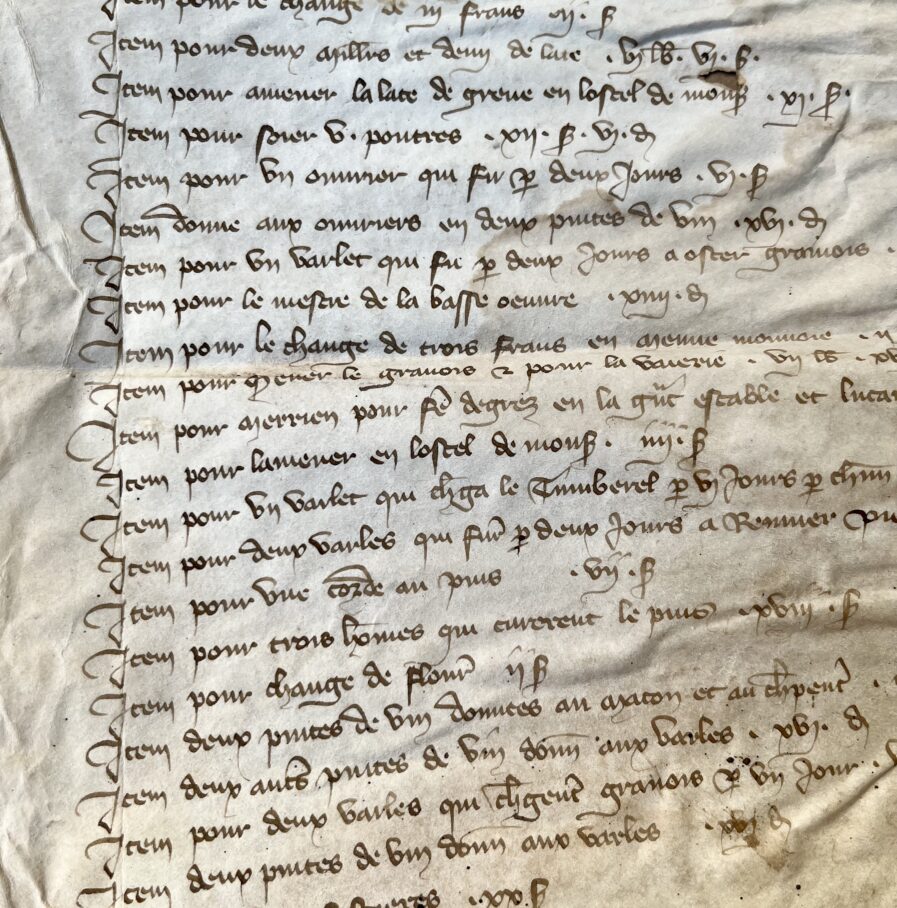 Item pour le change de iij frans iij. s
Item pour deux milliers et demi de late . vj lb. vj. s.
Item pour amener la late de greve en lostel de mons . xj. s.
Item pour soier v. poutres . xij. s. vj. d
Item pour un ouvrier qui fu p deux jours . vj. s
Item donne aux ouvriers en deux pintes de vin . xvj. d
Item pour un varlet qui fu p deux jours a oster gravois .
Item pour le mestre de la basse oeuvre . xiiij. d
Item pour le change de trois frans en menue monnoie . ij
Item pour mener le gravois et pour la voierie . vij lb . xv
Item pour merrien pour fe degrez en la gnt estable et lucar
Item pour lamener en lostel de mons . iiij. s
Item pour un varlet qui chga le Tumberel p vj jours p chun
Item pour deux varles qui fur p deux jours a Remuer
Item pour une corde au puis . vij. s
Item pour trois homes qui curerent le puis . xviij . s
Item pour change de flour ij s
Item deux pintes de vin donnees au maton et au chpent .
Item deux auts pintes de vin donn aux varles . xvj. d
Item pour deux varles qui chgent gravois p un jour .
Item deux pintes de vin donn aux varles . xvj d
. xx. s